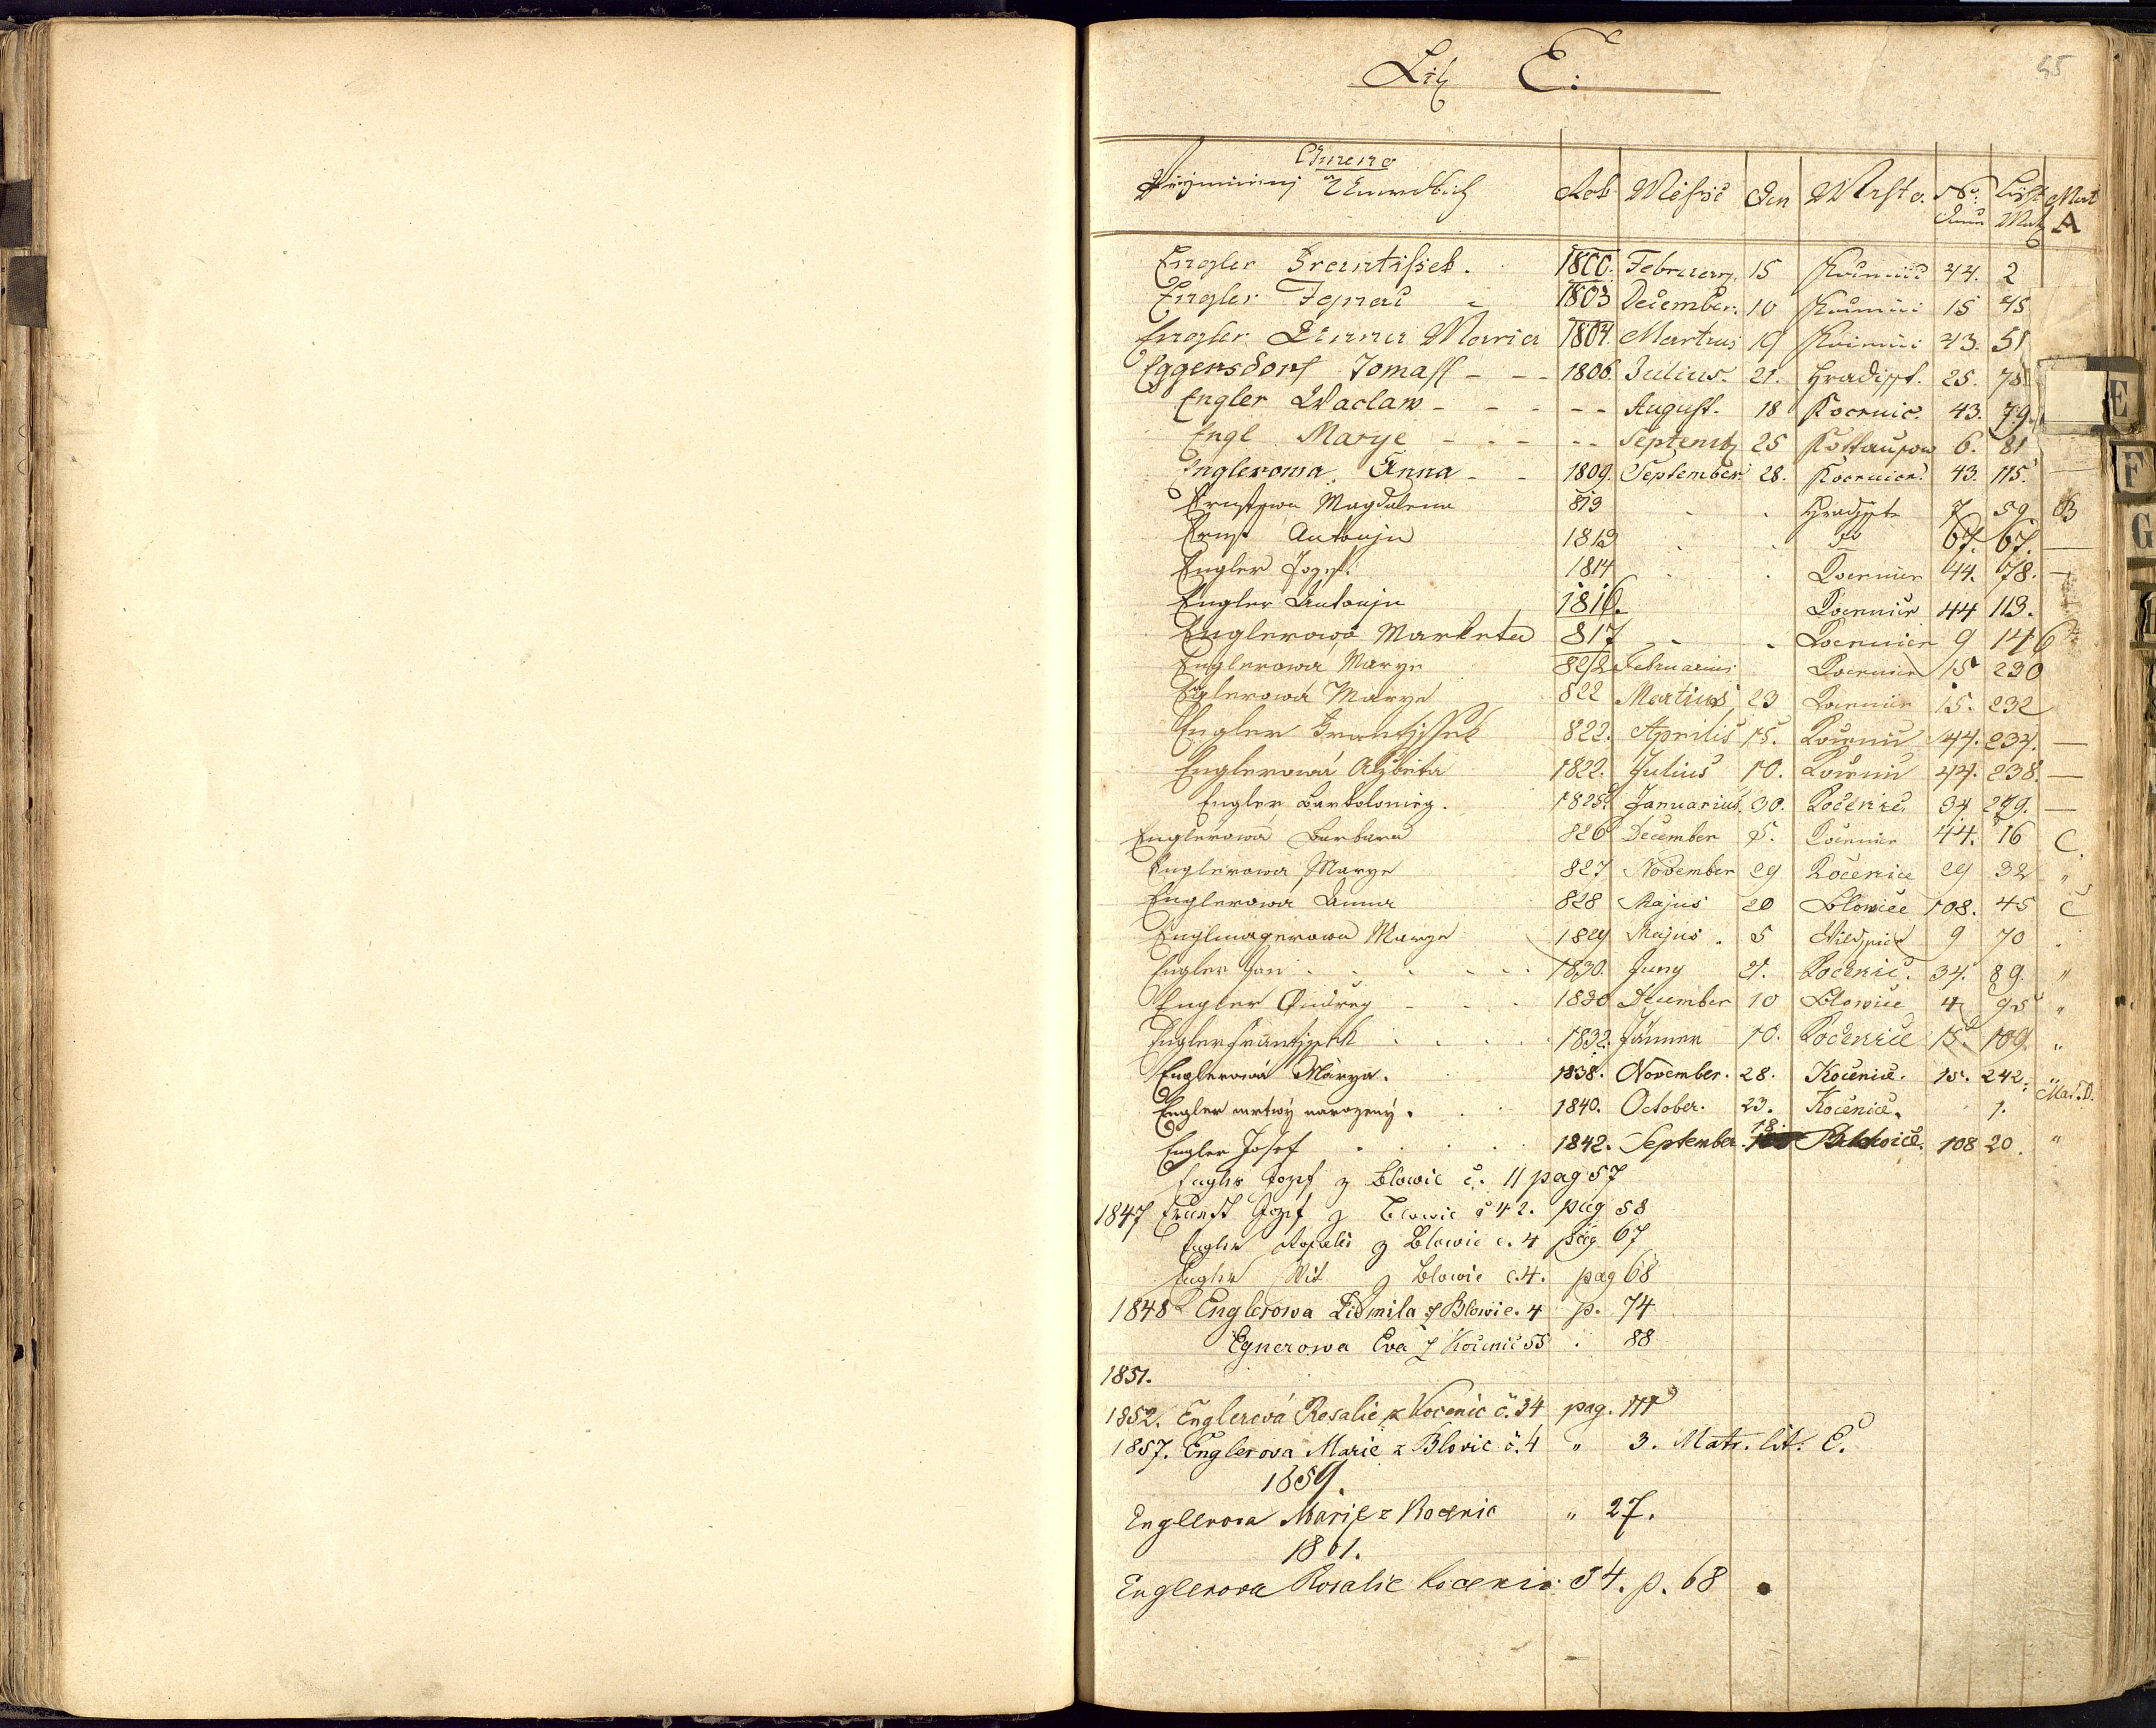 55
Lit. E:
Gmeno
Rok Měsíc Den Město No. List Mat
A
Engler Frantissek. 1800. February. 15 44. 2
Engler Ignac 1803 December. 10 15 45
Engler Anna Maria 1804. Martius 19 43. 51
Eggersdorf Tomass - - - 1806. Julius. 21. Hradisst. 25. 78
Engler Waclaw - - - - - August. 18 Kocenic. 43. 79.
Engl Marye - - - - - Septemb 25 6. 81
Englerowa Anna - - 1809. September. 28. Kocenic. 43. 115.
Ernstowa Magdalena 813 Hradisste 7 59 B
Ernst Antonjn 1813 67. 67.
Engler Jozef. 1814 Kocenicz 44. 78.
Engler Antonjn 1816. Kocenicz 44 113.
Englerowa Marketa 817 Kocenicz 9 146
Englerowa Marye 822 Februarius Kocenicz 15 230
Englerowá Marye 822 Martius 23 Kocenicz 15. 232
Engler Frantissek 822. Aprilis 15. Kočenic 44. 234.
Englerowá Alzbieta 1822. Julius 10. Kočenic 44. 238.
Engler Bartolomieg. 1825. Januarius. 30. Kočenic 34 279.
Englerowa Barbara 826 December 5. Kocenic 44. 16 C.
Englerowa Marye 827 November 29 Kočenice 29 32 "
Englerowa Anna 828 Majus 20 Blowice 108. 45 C
Englmagerowa Marye 1829 Majus. 5 9 70
Engler Jan . . . . . 1830. Juny 21. Kočenic. 34. 89. "
Engler Ondřeg - . . 1830 December 10 Blowice 4 95 "
Engler Frantissek . . . . 1832. Jänner 10. Kočenice 15. 109. "
Englerowá Márya. 1838. November. 28. Kočenice. 15. 242. "
Engler mrtwý narozený. . . 1840. October. 23. Kočenice. 1. Mat. D.
Engler Josef . . . . 1842. September. 18. Blowice. 108 20. "
Engler Jozef z Blowic č. 11 pag 57
1847 Ernest Jozef z Blowic č 42. pag 58
Engler Rosalia z Blowic č. 4 pag 67
Engler Wit z Blowic č. 4. pag 68
1848 Englerowa Lidmila z Blowic. 4 p. 74
Egnerowa Eva z Kočenic 55 . 88
1851.
1852. Englerová Rosalie z Kocenic č. 34 pag. 111
1857. Englerova Marie z Blovic č. 4 " 3. Matr. lit. E.
1859.
Englerova Marie z Kocenic " 27.
1861.
Englerova Rosalie Kocenic 34. p. 68
E
F
G